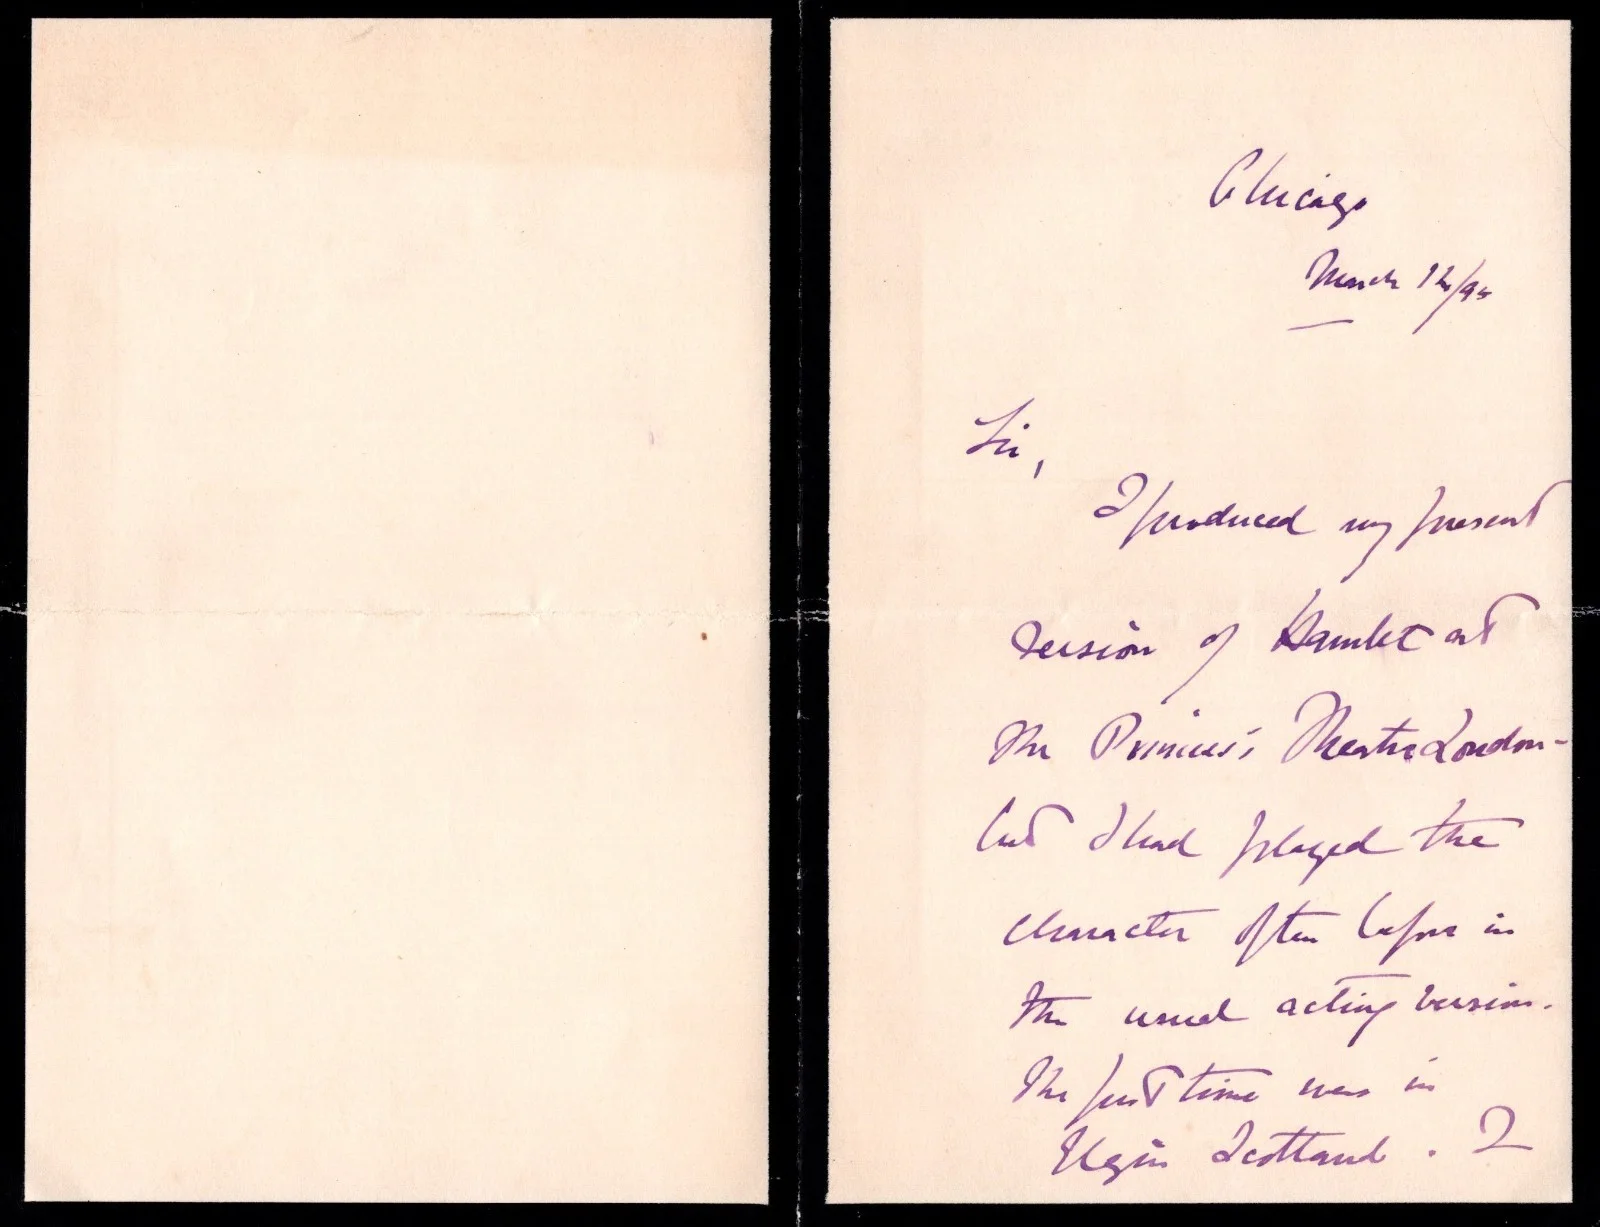 Chicago
March 12/95
Sir,
I produced my present
version of Hamlet at
the Princess's Theatre London -
but I had played the
character often before in
the usual acting version.
The first time was in
Elgin Scotland. I